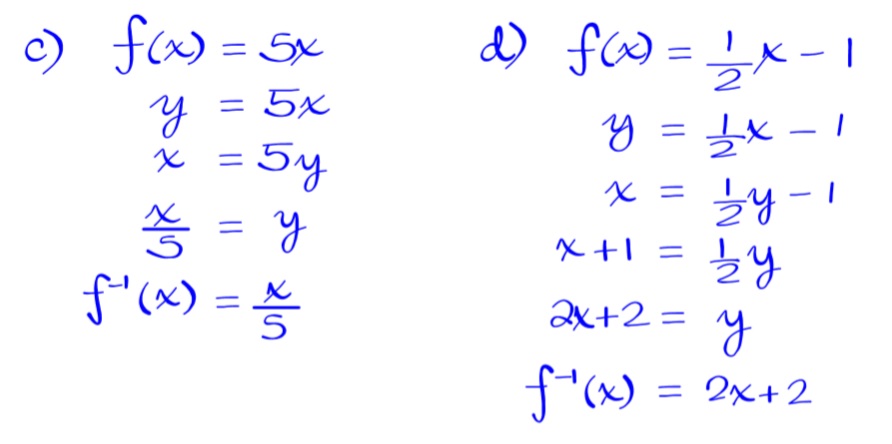 c) f(x) = 5x
y = 5x
x = 5y
x/5 = y
f⁻¹(x) = x/5
d) f(x) = 1/2 x - 1
y = 1/2 x - 1
x = 1/2 y - 1
x + 1 = 1/2 y
2x + 2 = y
f⁻¹(x) = 2x + 2